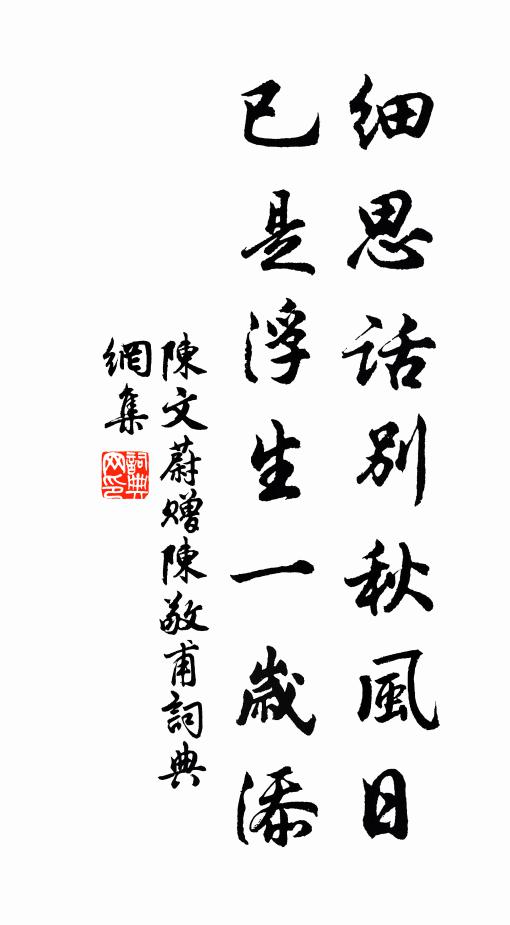 细思話别秋風日
已是浮生一歲添
陳文蔚贈陳敬甫詞典
網集
詞典網印